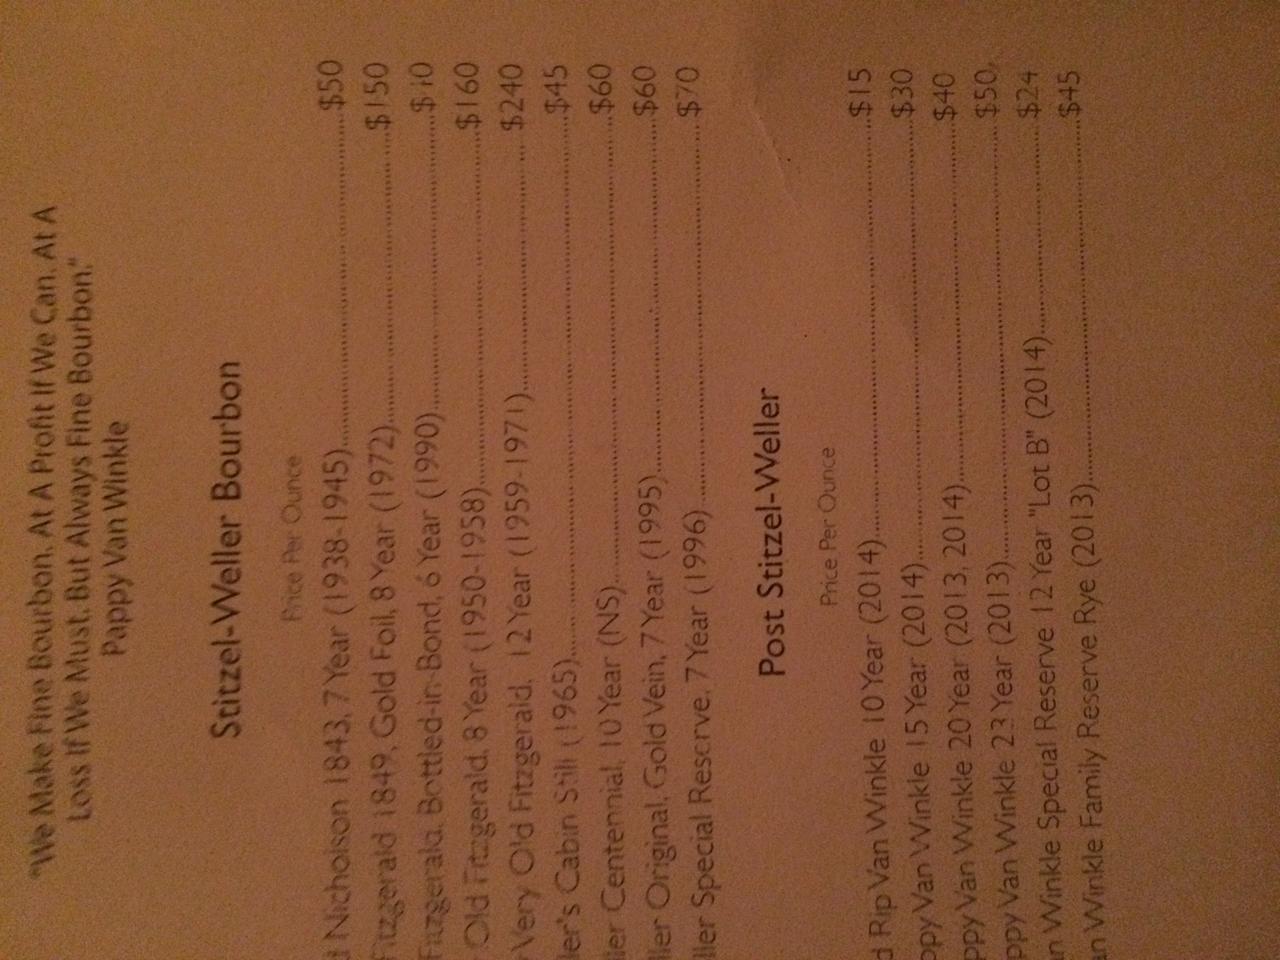 "We Make Fine Bourbon. At A Profit If We Can. At A
Loss If We Must. But Always Fine Bourbon."
Pappy Van Winkle
Stitzel-Weller Bourbon
Price Per Ounce
d Nicholson 1843, 7 Year (1938-1945)..........$50
Fitzgerald 1849, Gold Foil, 8 Year (1972)..........$150
Fitzgerald, Bottled-in-Bond, 6 Year (1990)..........$10
Old Fitzgerald, 8 Year (1950-1958)..........$160
Very Old Fitzgerald, 12 Year (1959-1971)..........$240
ler's Cabin Still (1965)..........$45
ller Centennial, 10 Year (NS)..........$60
ller Original, Gold Vein, 7 Year (1995)..........$60
ller Special Reserve, 7 Year (1996)..........$70
Post Stitzel-Weller
Price Per Ounce
d Rip Van Winkle 10 Year (2014)..........$15
ppy Van Winkle 15 Year (2014)..........$30
ppy Van Winkle 20 Year (2013, 2014)..........$40
ppy Van Winkle 23 Year (2013)..........$50
n Winkle Special Reserve 12 Year "Lot B" (2014)..........$24
an Winkle Family Reserve Rye (2013)..........$45